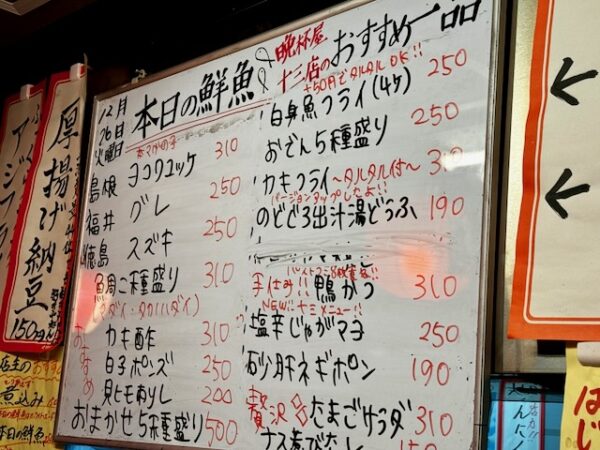 12月
16日
火曜日
本日の鮮魚
本マグロの子
ヨコワユッケ 310
島根 グレ 250
福井 スズキ 250
徳島 魚周二種盛り 310
(マダイ・タカノハダイ)
おすすめ
カキ酢 310
白子ポンズ 250
貝ヒモ刺し 200
おまかせ5種盛り 500
晩杯屋
十三店の おすすめ一品
+50円でタルタルOK!!
白身魚フライ(4ケ) 250
おでん5種盛り 250
カキフライ〜タルタル付〜 310
バージョンアップしたよ!!
のどぐろ出汁湯どうふ 190
手仕込み!! 鴨かつ 310
NEW!! 十三メニュー!!
塩辛じゃがマヨ 250
砂肝ネギポン 190
贅沢 たまごサラダ 310
厚揚げ納豆
150円
アジフライ
店主のおすすめ
煮込み
本日の鮮魚